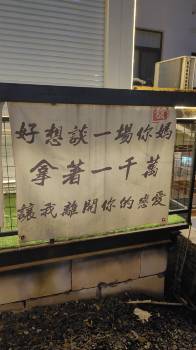 好想談一場你媽
拿著一千萬
讓我離開你的戀愛